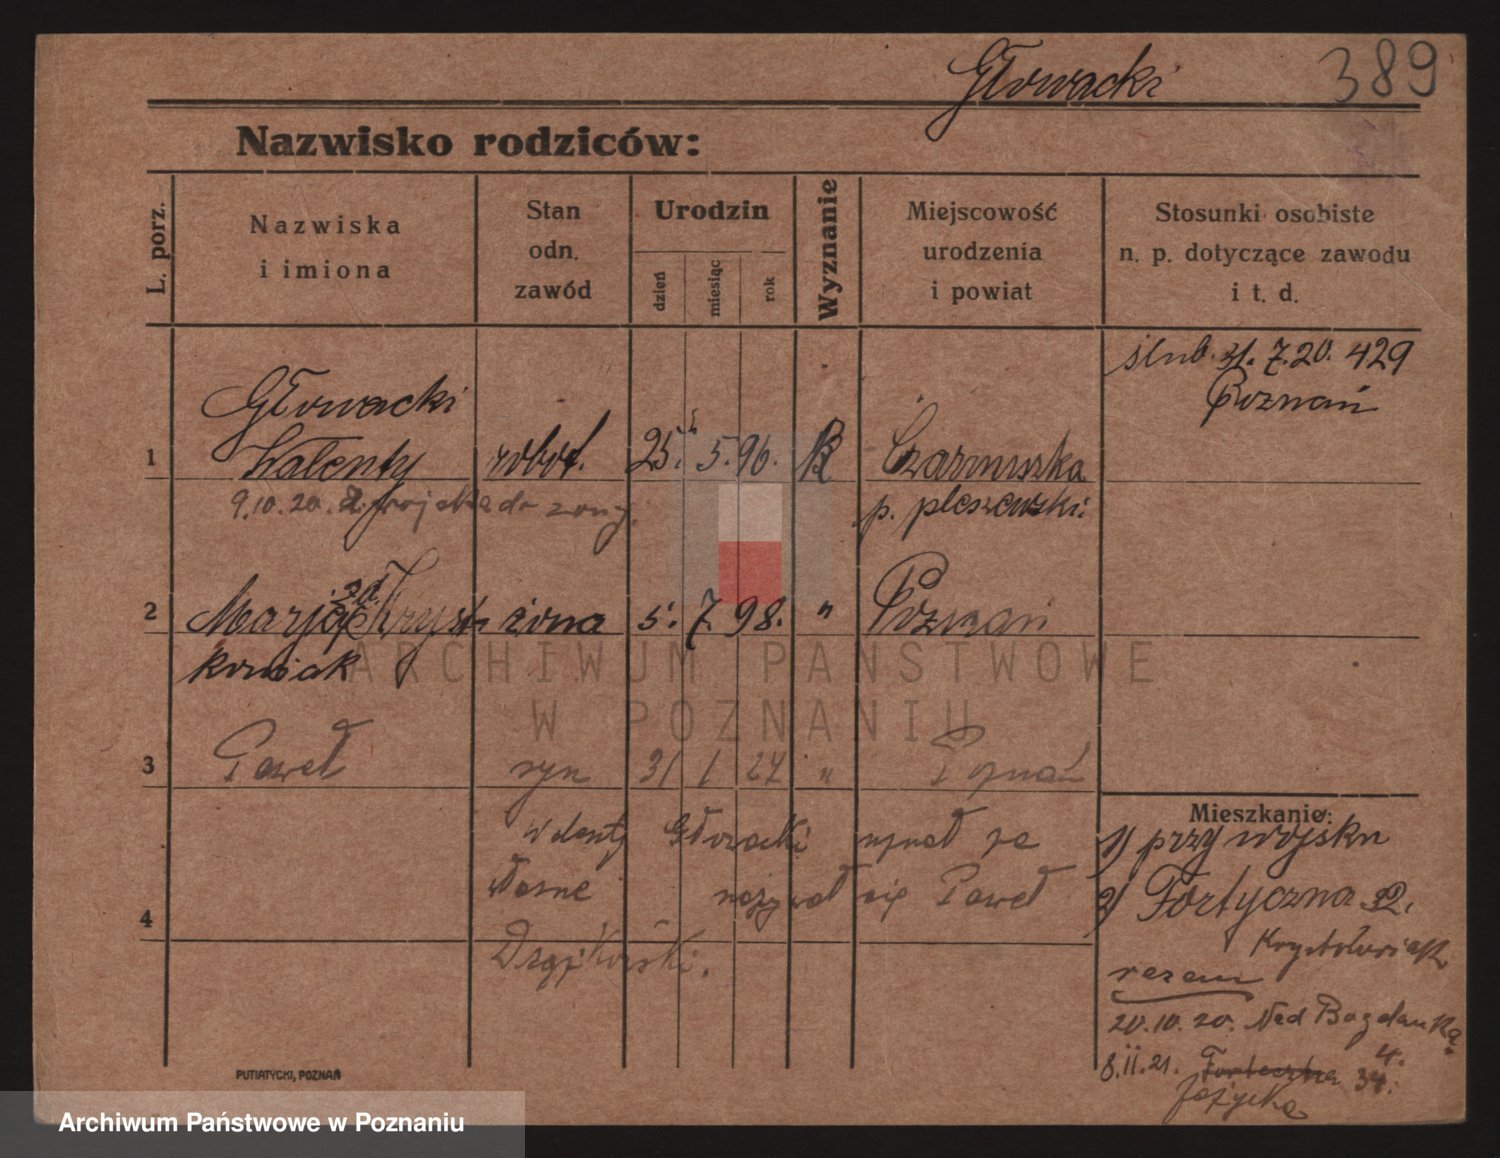 Głowacki 389
Nazwisko rodziców:
L. porz.
Nazwiska
i imiona
Stan
odn.
zawód
Urodzin
dzień
miesiąc
rok
Wyznanie
Miejscowość
urodzenia
i powiat
Stosunki osobiste
n. p. dotyczące zawodu
i t. d.
ślub. 31. 7. 20. 429
Poznań
Głowacki
1 Walenty robot. 25. 5. 96. K Czarnuszka
9.10.20. żony p. pleszewski
2 Marja zd. Kryszt żona 5. 7. 98. " Poznań
kowiak
3 Paweł syn 31 1 27 " Poznań
Mieszkanie:
Głowacki uznał za
1) przy wojsku
własne nazywał się Paweł
2) Fortyczna 32.
4
razem
20.10.20. Nad Bogdanką
4.
8.II.21. 34.
PUTIATYCKI, POZNAŃ
ARCHIWUM PAŃSTWOWE
W POZNANIU
Archiwum Państwowe w Poznaniu